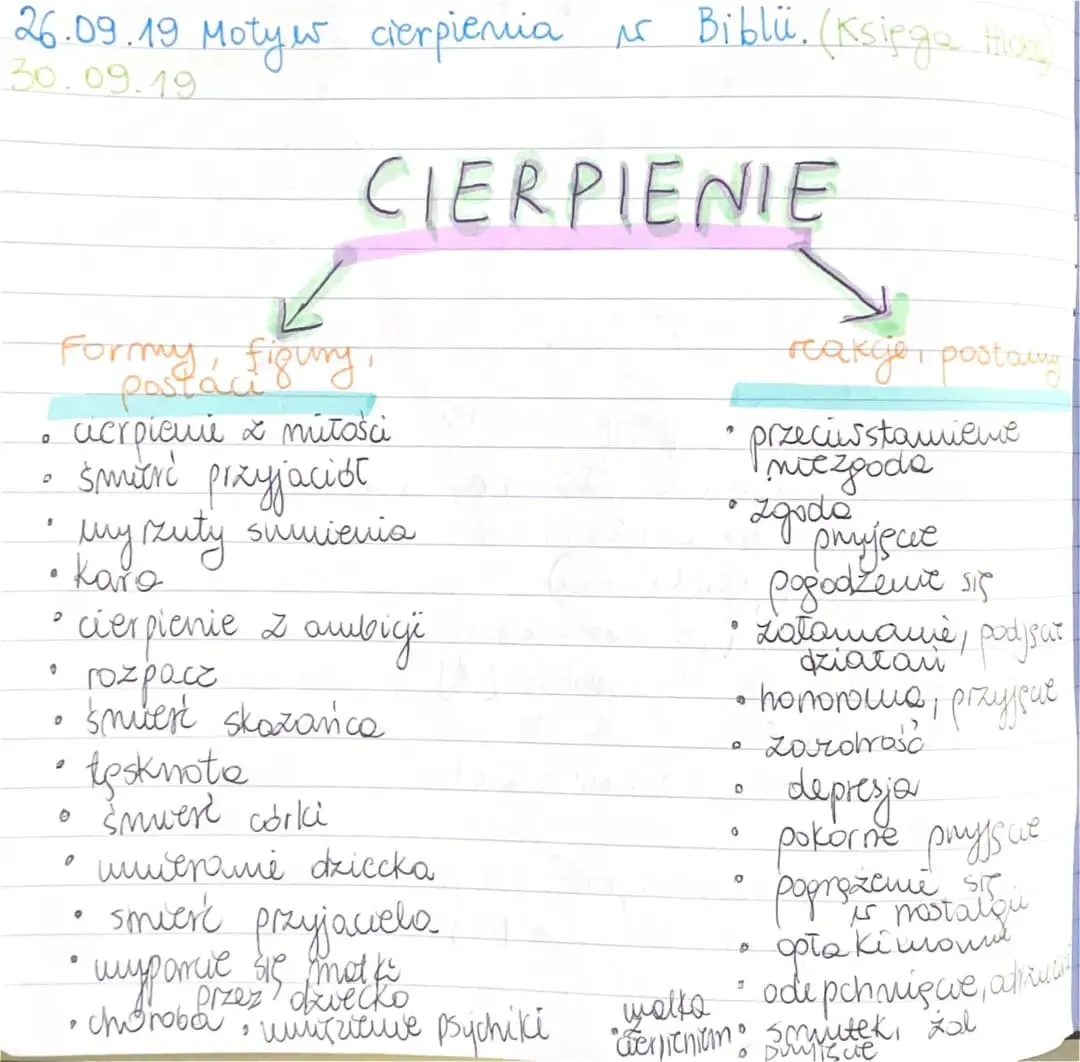 26.09.19 Motyw cierpienia w Biblii. (Księga Hioba)
30.09.19
CIERPIENIE
Formy, figury,
postaci
reakcje, postawy
• cierpienie z miłości
• śmierć przyjaciół
• wyrzuty sumienia
• kara
• cierpienie z ambicji
• rozpacz
• śmierć skazańca
• tęsknota
• śmierć córki
• umieranie dziecka
• smierć przyjaciela
• wyparcie się matki
przez dziecko
• choroba • uwięzienie psychiki
• przeciwstawienie
niezgoda
• zgoda
przyjęcie
pogodzenie się
• załamanie, podjęcie
działań
• honorowa, przyjęcie
• zazdrość
• depresja
• pokorne przyjęcie
• pogrążenie się
w nostalgii
•
• odepchnięcie,
• walka
z
cierpieniem
• smutek, żal
• przyjęcie